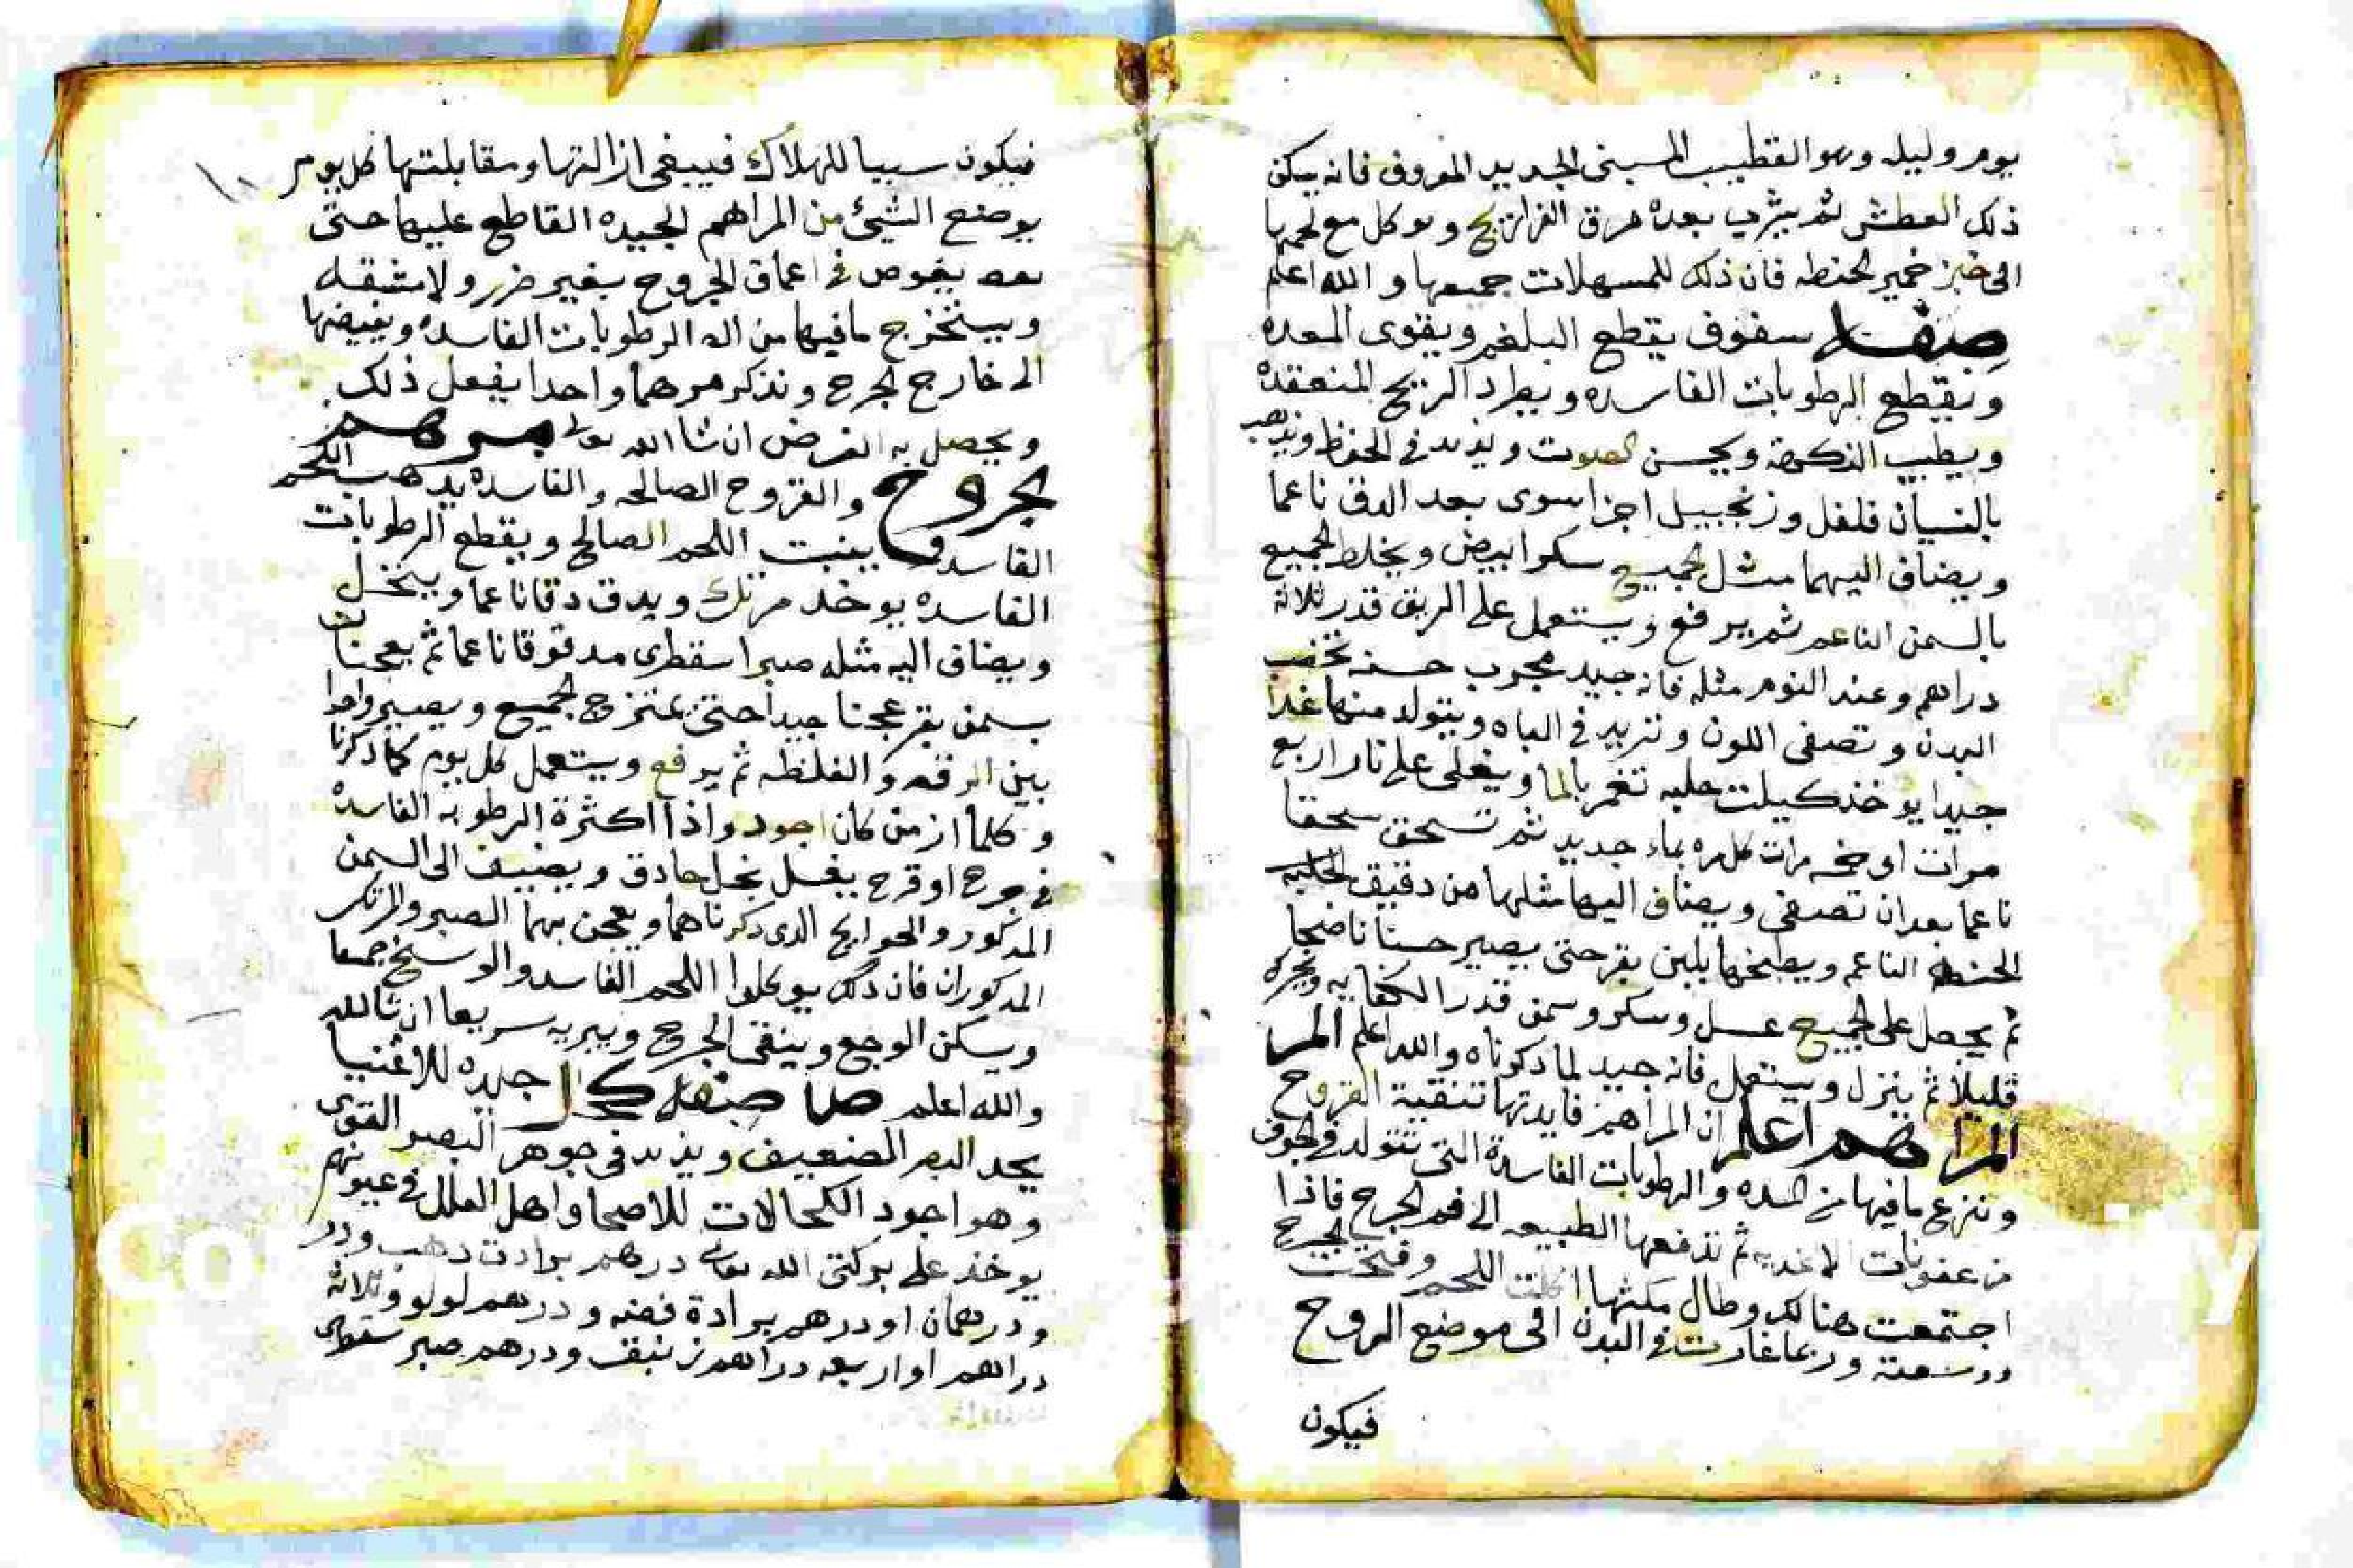 يوم وليله وهو القطيب المسبنى الجديد المعروف فانه يسكن
ذلك العطش ثم يشرب بعده مرق الفراريج ويوكل مع لحمها
الى خبز خمير الحنطه فان ذلك للمسهلات جميعها والله اعلم
صفة سفوف يقطع البلغم ويقوى المعده
ويقطع الرطوبات الفاسده ويطرد الريح المنعقده
ويطيب النكهة ويحسن الصوت ويزيد في الحفظ ويذهب
بالنسيان فلفل وزنجبيل اجزا سوى بعد الدق ناعما
ويضاف اليهما مثل الجميع سكرا ابيض ويخلط الجميع
بالسمن الناعم ثم يرفع ويستعمل على الريق قدر ثلاثة
دراهم وعند النوم مثله فانه جيد مجرب حسنه تخصب
البدن وتصفى اللون وتزيد في الباه ويتولد منها غذا
جيدا يوخذ كيلت حلبه تغمر بالما ويغلى على نار اربع
مرات او خمسه مرات كل مره بماء جديد ثم تسحق سحقا
ناعما بعد ان تصفى ويضاف اليها مثلها من دقيق الحلبه
الحنطه الناعم ويطبخها بلبن بقر حتى يصير حسنا ناضجا
ثم يجعل على الجميع عسل وسكر وسمن قدر الكفايه ويحركه
قليلا ثم ينزل ويستعمل فانه جيد لما ذكرناه والله اعلم المرا
المراهم اعلم ان المراهم فايدتها تنقية القروح
وتنزع ما فيها من المده والرطوبات الفاسدة التى تتولد في الجوف
من عفونات الاغذيه ثم تدفعها الطبيعه الى فم الجرح فاذا
اجتمعت هنالك وطال مكثها اكلت اللحم وفتحت الجرح
ووسعته وربما غارت في البدن الى موضع الروح
فيكون
فيكون سببا للهلاك فينبغى ازالتها ومقابلتها كل يوم
يوضع الشيئ من المراهم الجيده القاطع عليها حتى
يغوص في اعماق الجروح بغير ضرر ولا مشقه
ويستخرج ما فيها من الرطوبات الفاسده ويفيضها
الى خارج الجرح ونذكر مرهما واحدا يفعل ذلك
ويحصل به الغرض ان شا الله تعالى مرهم
لجروح والقروح الصالحه والفاسده يذهب اللحم
الفاسد وينبت اللحم الصالح ويقطع الرطوبات
الفاسده يوخذ مرتك ويدق دقا ناعما وينخل
ويضاف اليه مثله صبرا سقطرى مدقوقا ناعما ثم يعجنان
بسمن بقر عجنا جيدا حتى يمتزج الجميع ويصير واحدا
بين الرقه والغلظه ثم يرفع ويستعمل كل يوم كما ذكرنا
وكلما ازمن كان اجود واذا اكثرة الرطوبه الفاسده
في جرح او قرح يغسل بخل حادق ويضيف الى السمن
المذكور والحوايج الذى ذكرناهما ويعجن بهما الصبر والمرتك
المذكوران فان ذلك يوكلوا اللحم الفاسد والوسخ جميعا
ويسكن الوجع وينقى الجرح ويبريه سريعا ان شا الله
والله اعلم صفة كحل جيده للاغنيا
يحد البصر الضعيف ويزيد في جوهر البصر القوى
وهو اجود الكحالات للاصحا واهل العلل في عيونهم
يوخذ على بركتى الله تعالى درهم برادت ذهب ودر
ودرهمان او درهم برادة فضه ودرهم لولو وثلاثة
دراهم او اربعه دراهم زنبق ودرهم صبر سقطرى